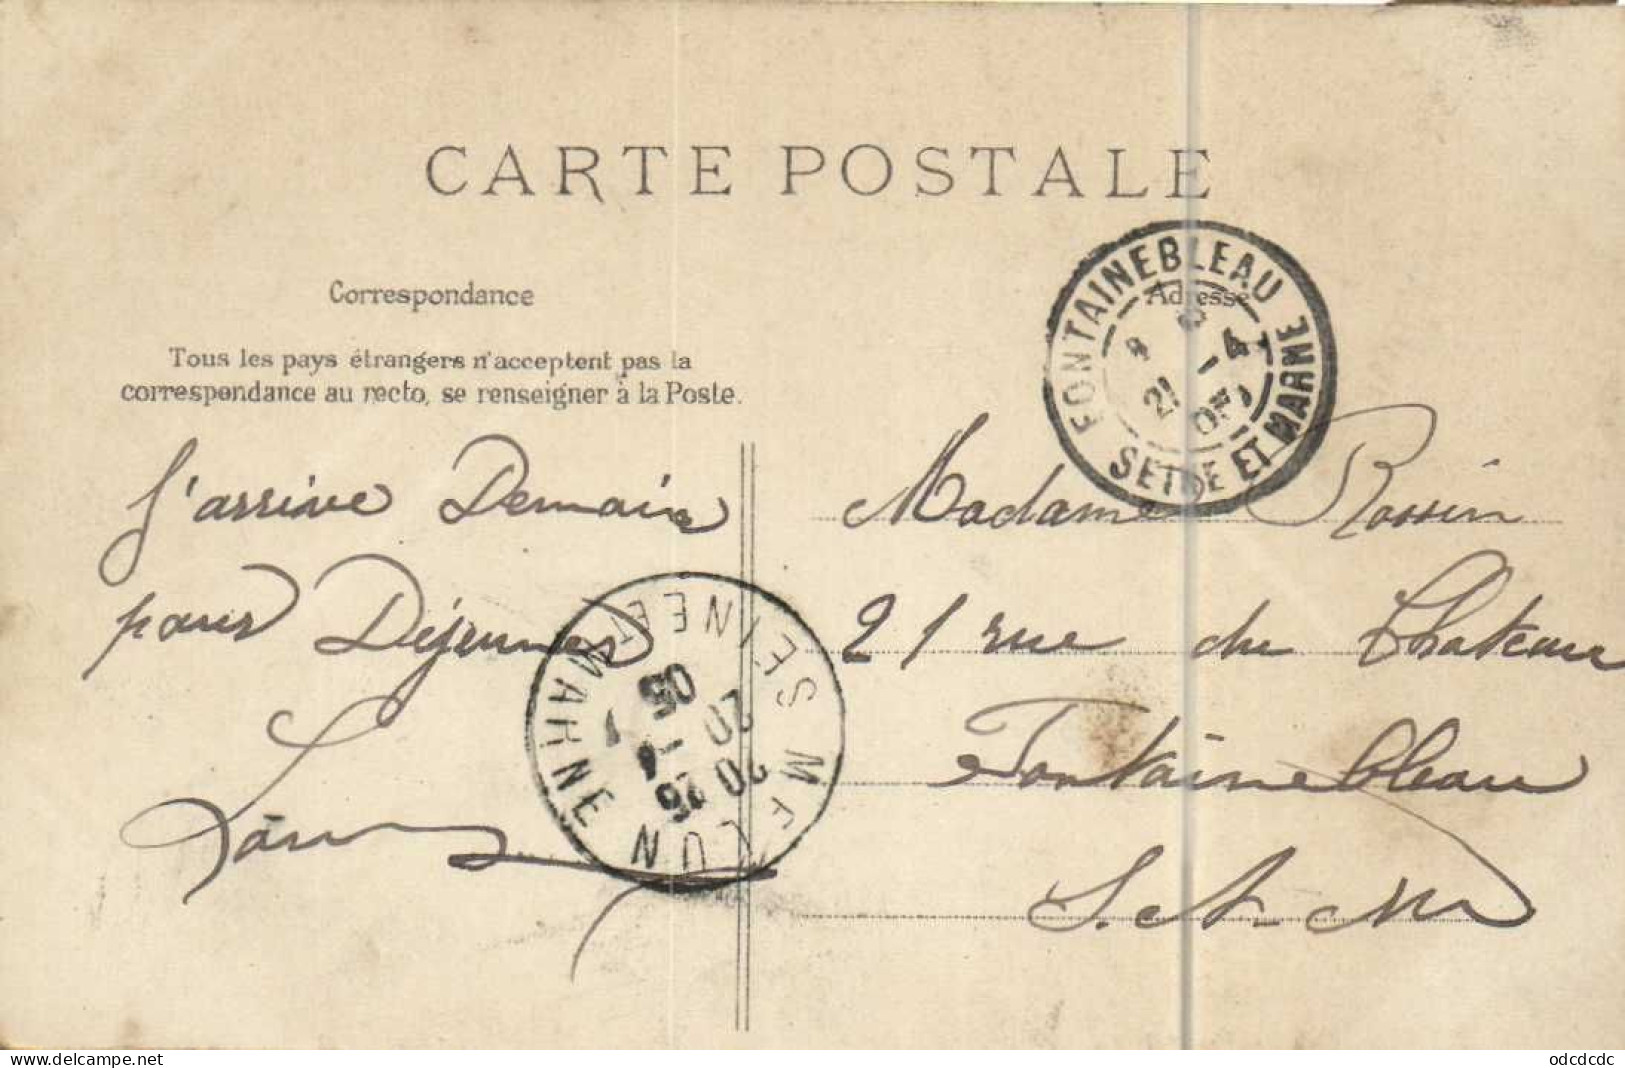 CARTE POSTALE
Correspondance
Tous les pays étrangers n'acceptent pas la
correspondance au recto, se renseigner à la Poste.
J'arrive Demain
pour Déjeuner
Adresse
FONTAINEBLEAU
SEINE ET MARNE
21 -4
05
MELUN
SEINE ET MARNE
20 26
20 -4
05
Madame Rossin
21 rue du Chateau
Fontainebleau
S. et M
www.delcampe.net
odcdcdc